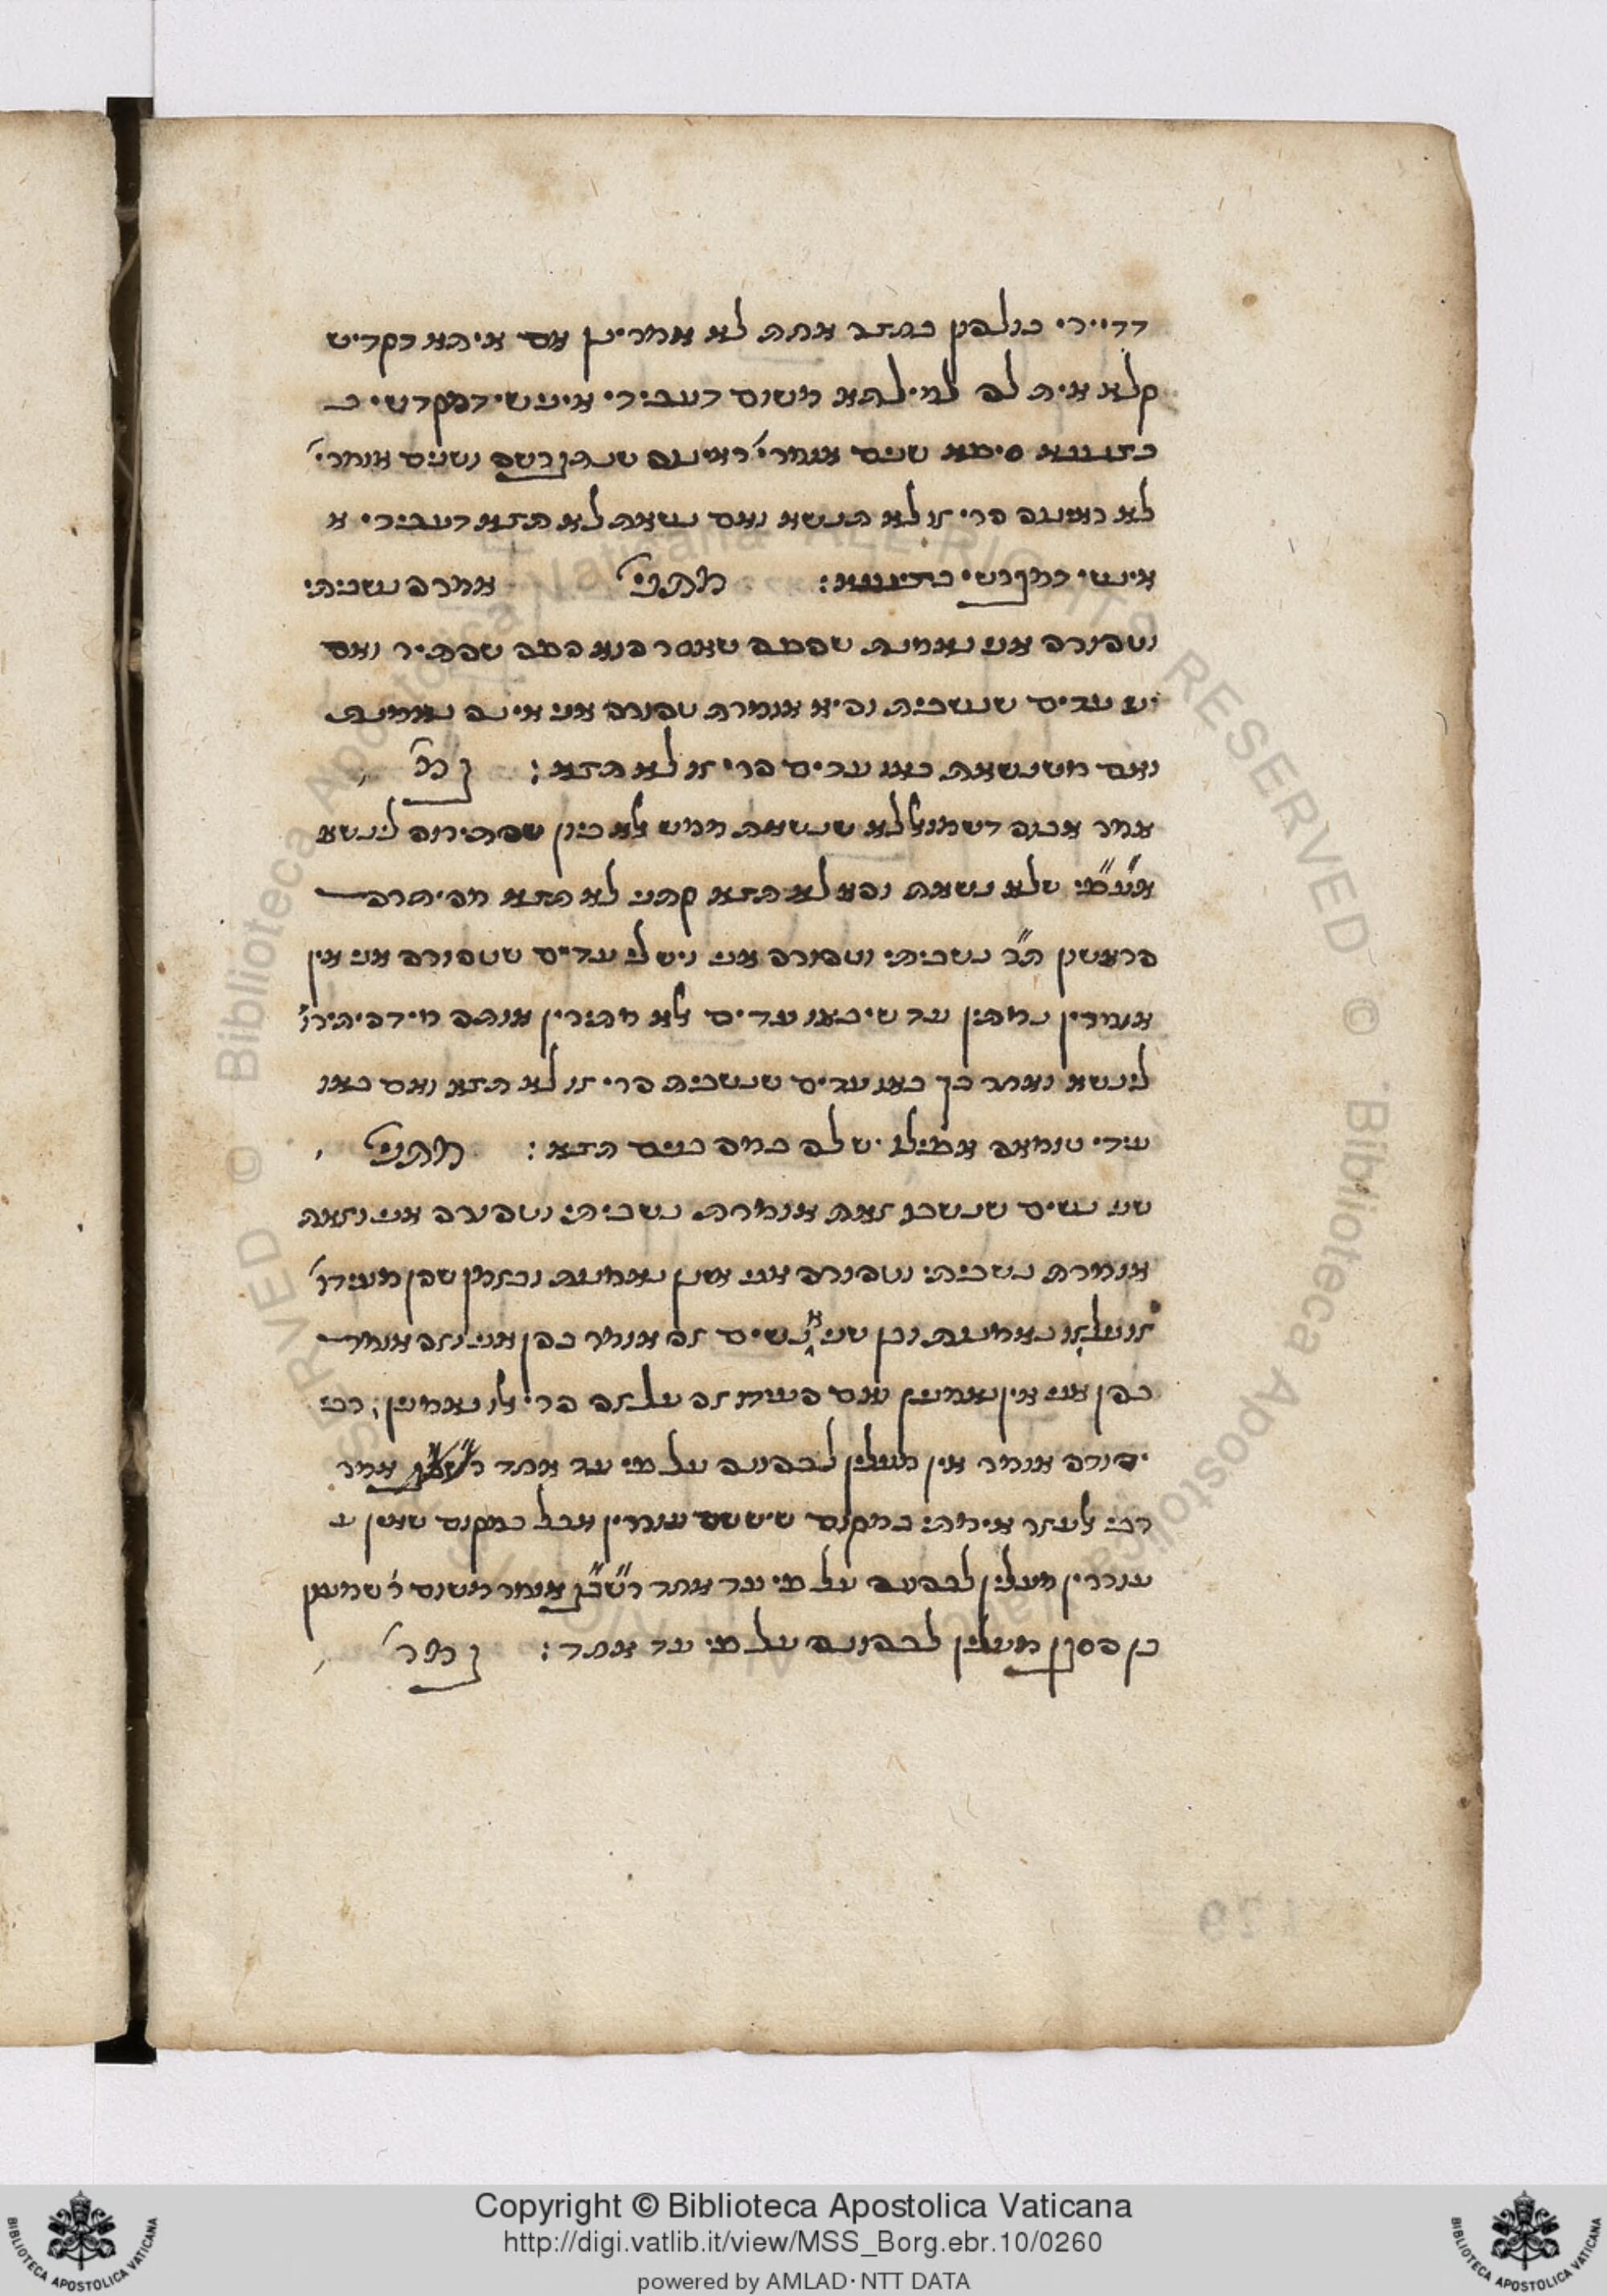 דדיירי כולהון בחצר אחת לא אמרינן אם איתא דקדיש
קלא אית לה למילתא משום דעבידי אינשי דמקדשי ב
בצנעא סיפא שנים אומרי' ראינוה שנתגרשה ושנים אומרי'
לא ראינוה הרי זו לא תנשא ואם נשאת לא תצא דעבידי א
אינשי דמגרשי בצינעא: מתני' אמרה נשביתי
וטהורה אני נאמנת שהפה שאסר הוא הפה שהתיר ואם
יש עדים שנשבית והיא אומרת טהורה אני אינה נאמנת
ואם משנשאת באו עדים הרי זו לא תצא: גמ'
אמר אבוה דשמואל לא שנשאת ממש אלא כיון שהתירוה לינשא
אע"פ שלא נשאת והא לא תצא קתני לא תצא מהיתרה
הראשון ת"ר נשביתי וטהורה אני ויש לי עדים שטהורה אני אין
אומרין נמתין עד שיבאו עדים אלא מתירין אותה מיד התירו'
לינשא ואחר כך באו עדים שנשבית הרי זו לא תצא ואם באו
עידי טומאה אפילו יש לה כמה בנים תצא: מתני'
שתי נשים שנשבו זאת אומרת נשביתי וטהורה אני וזאת
אומרת נשביתי וטהורה אני אינן נאמנות ובזמן שהן מעידו'
זו על זו נאמנות וכן שני אנשים זה אומר כהן אני וזה אומר
כהן אני אין נאמנין ואם העיד זה על זה הרי אלו נאמנין רבי
יהודה אומר אין מעלין לכהונה על פי עד אחד אמר
רבי אלעזר אימתי במקום שיש שם עוררין אבל במקום שאין ע
עוררין מעלין לכהונה על פי עד אחד רשב"ג אומר משום ר' שמעון
בן הסגן מעלין לכהונה על פי עד אחד: גמר'
Copyright © Biblioteca Apostolica Vaticana
http://digi.vatlib.it/view/MSS_Borg.ebr.10/0260
powered by AMLAD · NTT DATA